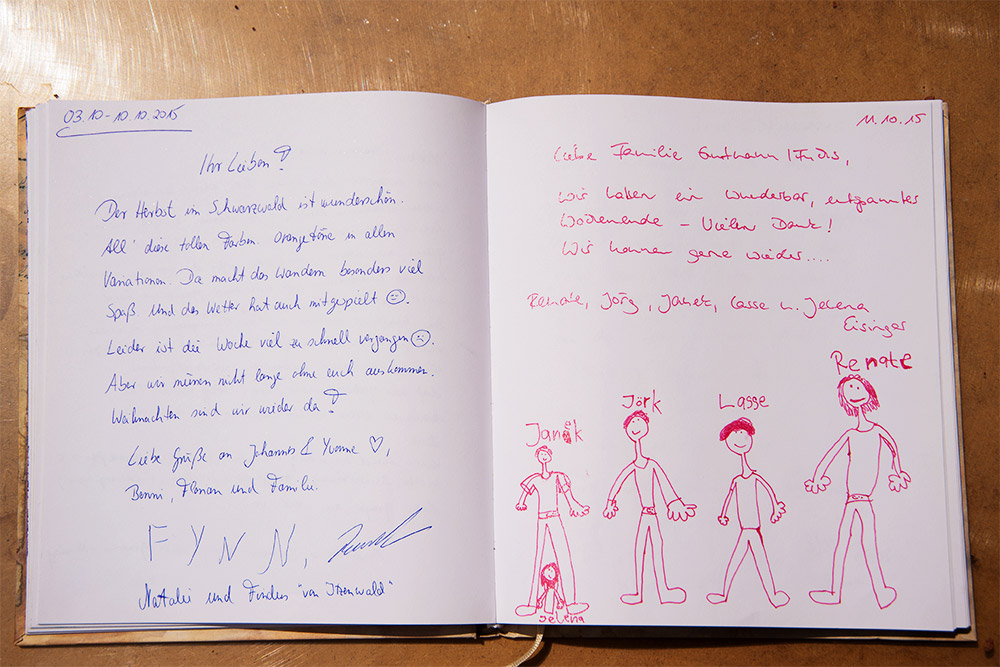 03.10 - 10.10.2015
Ihr Lieben!
Der Herbst im Schwarzwald ist wunderschön.
All' diese tollen Farben Orangetöne in allen
Variationen. Da macht das Wandern besonders viel
Spaß und das Wetter hat auch mitgespielt ☺.
Leider ist die Woche viel zu schnell vergangen ☹.
Aber wir müssen nicht lange ohne euch auskommen.
Weihnachten sind wir wieder da!
Liebe Grüße an Johannes & Yvonne ♡,
Benni, Florian und Familie.
FYNN,
Natalie und "von Ittenwald"
11.10.15
Liebe Familie
wir haben ein wunderbar, entspanntes
Wochenende – Vielen Dank!
Wir kommen gerne wieder....
Renate, Jörg, Janek, Lasse u. Jelena
Eisinger
Renate
Jörk
Lasse
Janek
Jelena